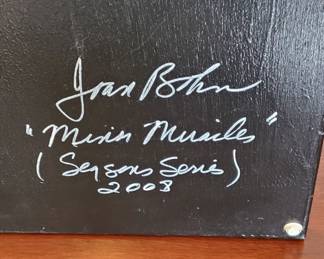 Joan Bohn
"Minor Miracles"
(Seasons Series)
2008